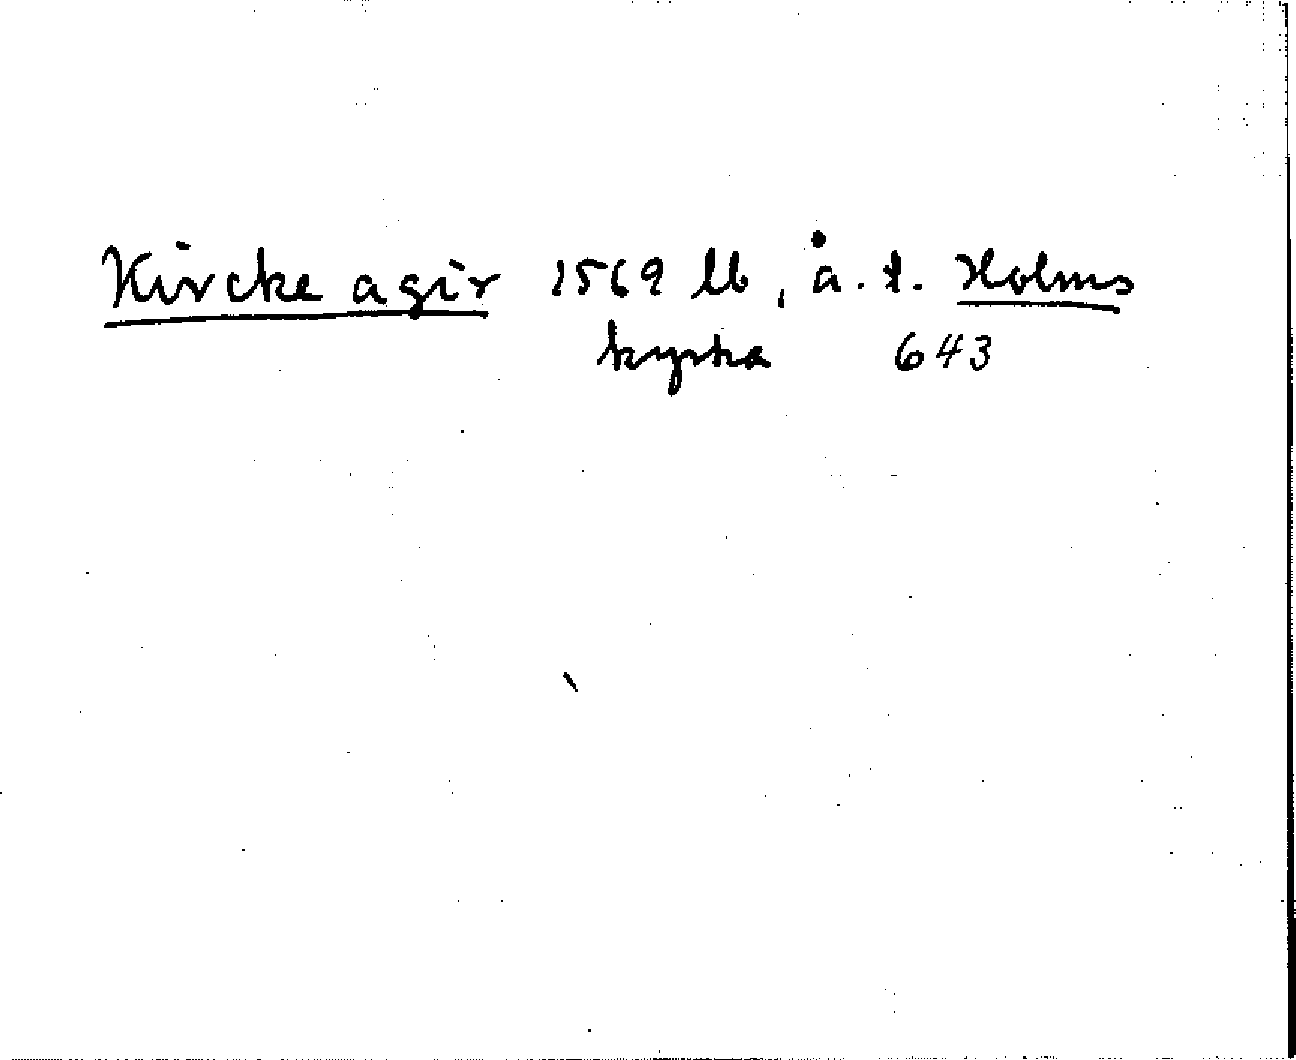 Kircke agir 1569 lb, å. t. Holms
kyrka 643